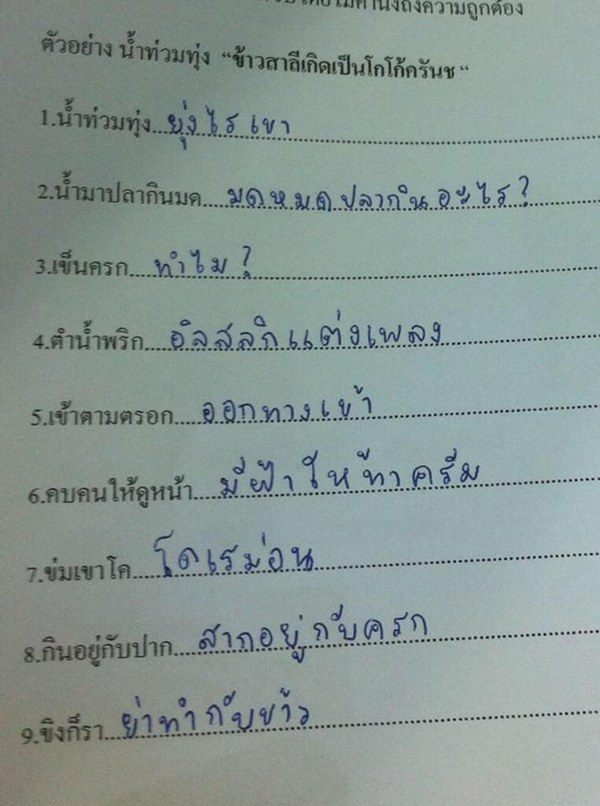 โดยไม่คำนึงถึงความถูกต้อง
ตัวอย่าง น้ำท่วมทุ่ง “ข้าวสาลีเกิดเป็นโกโก้ครันช “
1.น้ำท่วมทุ่ง...ยุ่งไรเขา
2.น้ำมาปลากินมด...มดหมดปลากินอะไร?
3.เข็นครก...ทำไม?
4.ตำน้ำพริก...อิลสลิกแต่งเพลง
5.เข้าตามตรอก...ออกทางเข้า
6.คบคนให้ดูหน้า...มีฝ้าให้ทาครีม
7.ข่มเขาโค...โดเรม่อน
8.กินอยู่กับปาก...สากอยู่กับครก
9.ขิงก็รา...ย่าทำกับข้าว